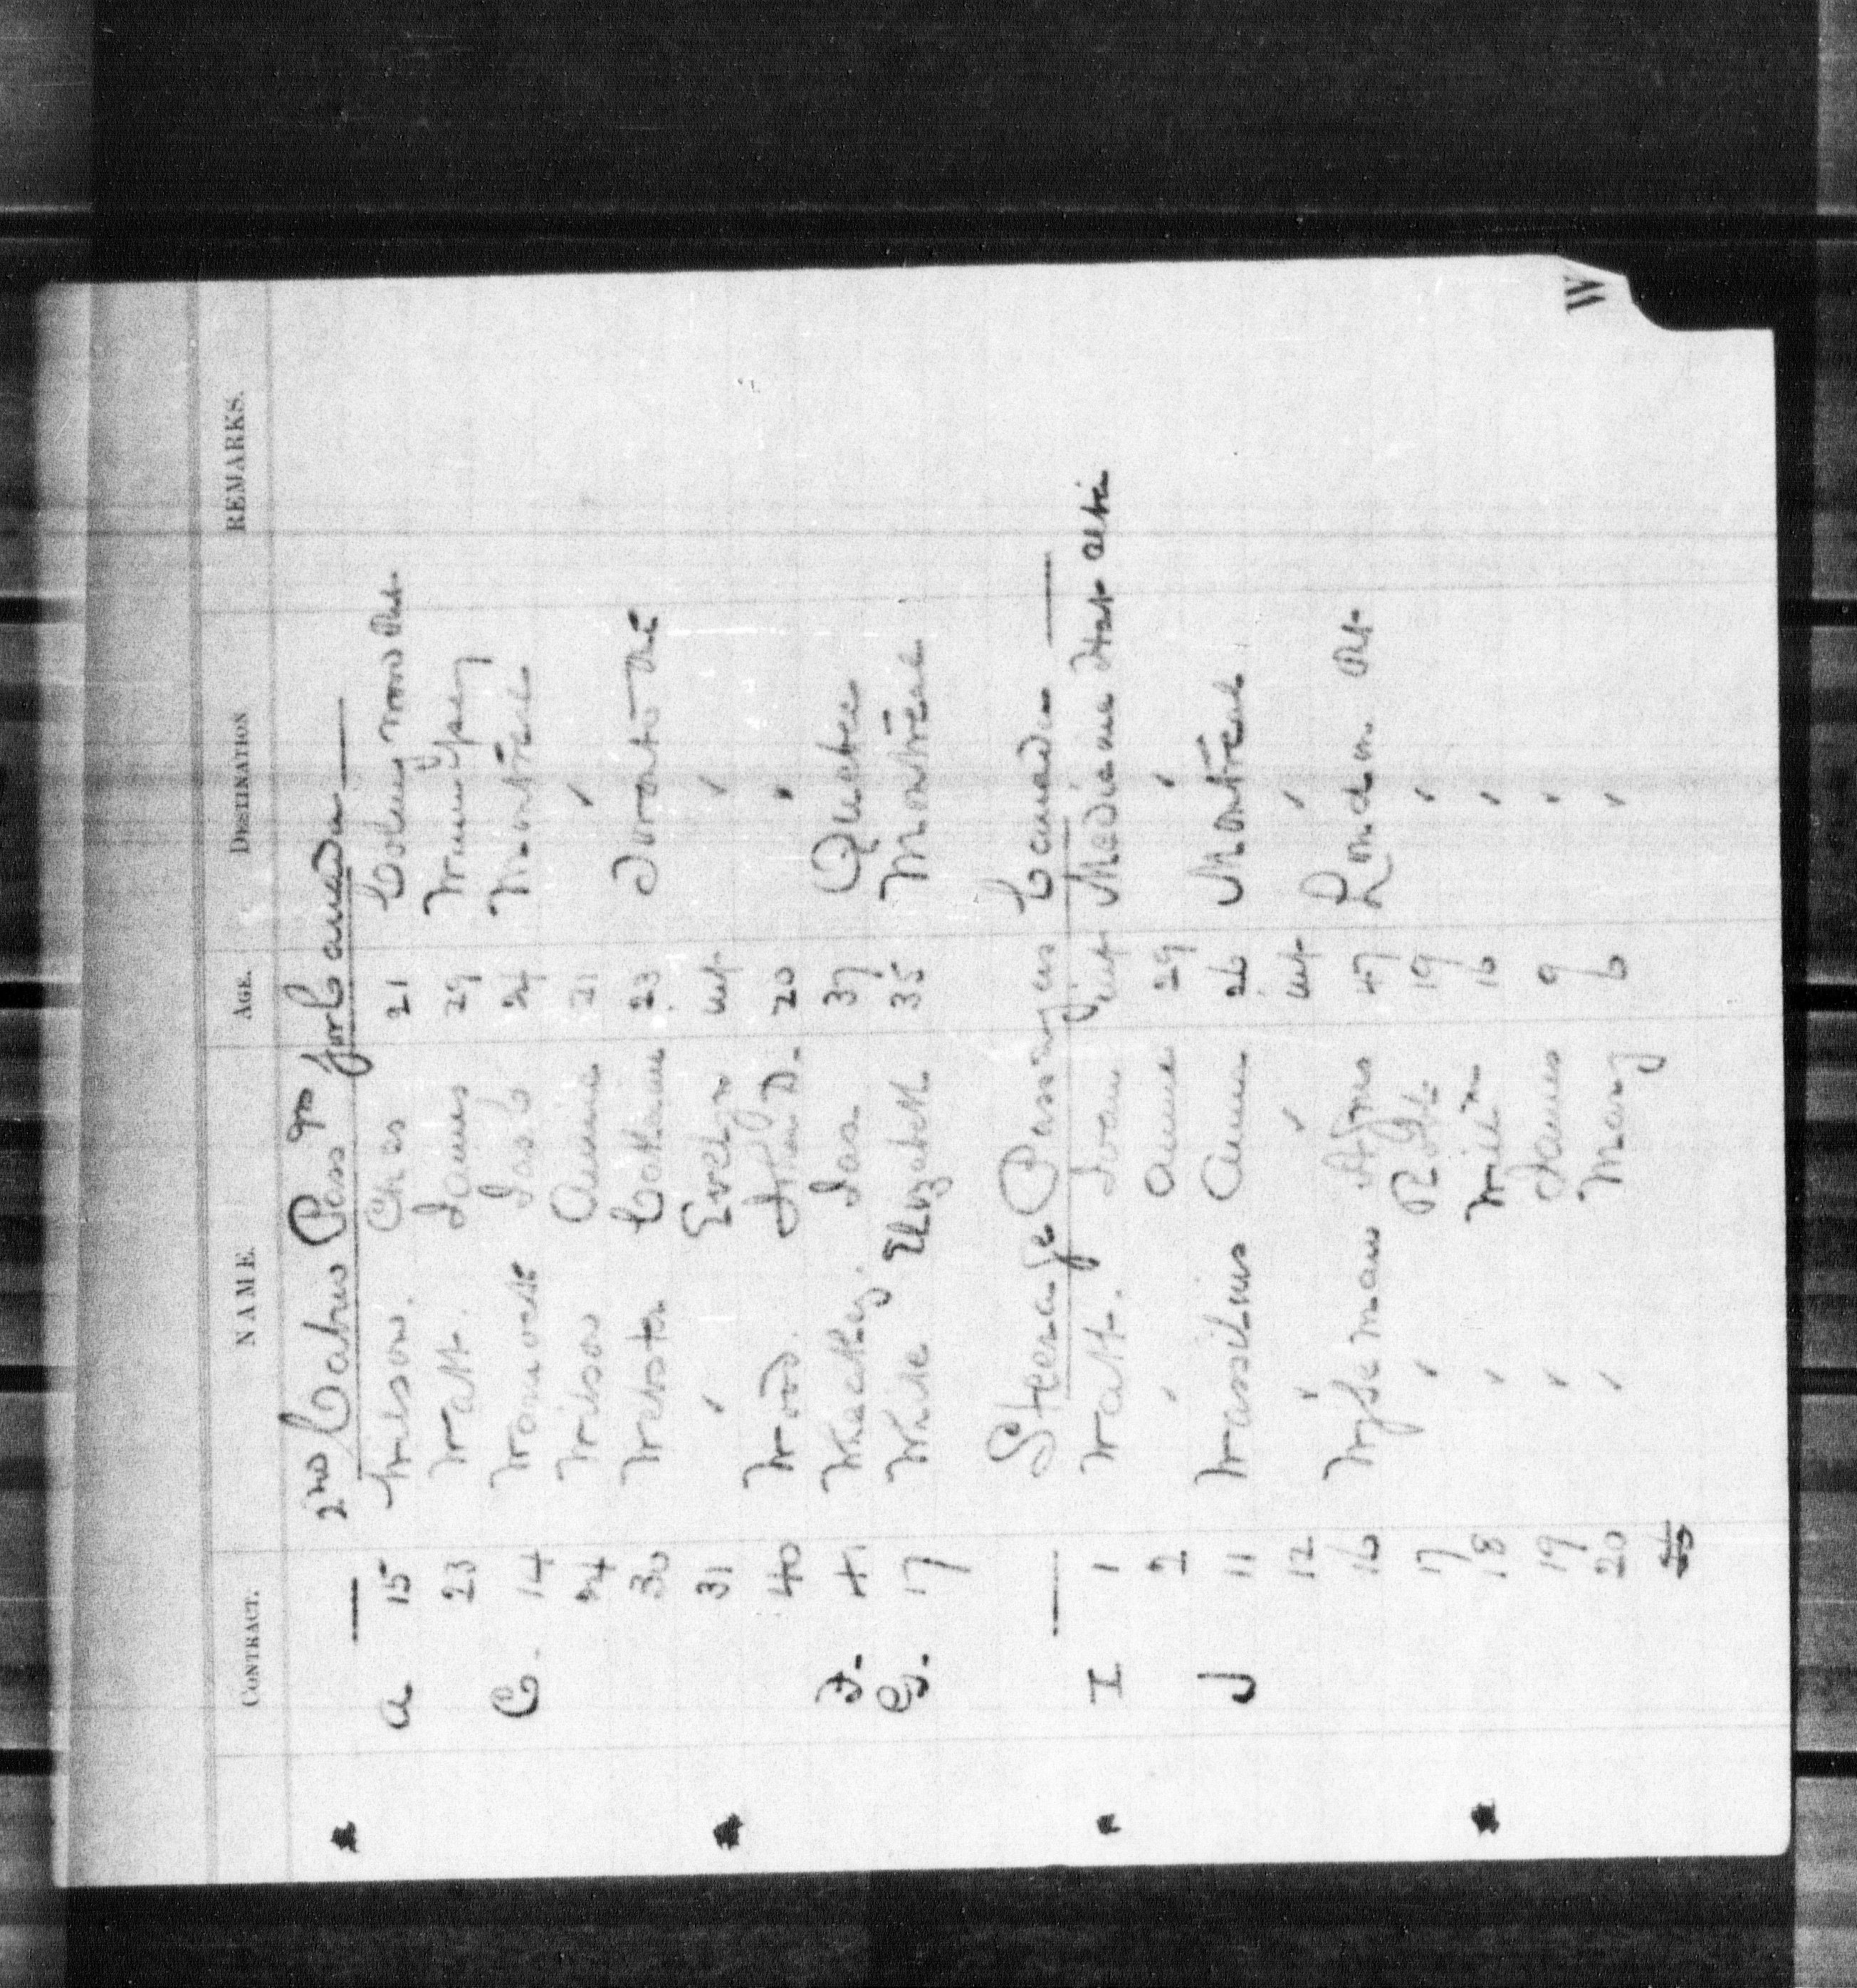 W
CONTRACT. NAME. AGE. DESTINATION REMARKS.
2nd Cabin Pass grs for Canada
A 15 Wilson. Chas 21
23 Watt. James 29 Winnipeg
C. 14 Jas C 24 Montreal
24 Wilson Annie 21 "
30 Webster Catherine 23 Toronto Ont
31 " Evelyn Inf "
40 Wood. Arthur D. 20 "
F. 41 Wheatley. Jas. 37 Quebec
G. 17 White Elizabeth 35 Montreal
Steerage Passengers Canada
I 1 Watt. Inf Medicine Hat Alta
2 " Annie 29 "
J 11 Wassilius Anna 26 Montreal
12 " " Inf "
16 Agnes 47 London Ont
17 " Robt. 19 "
18 " Willm 16 "
19 " James 9 "
20 " Mary 6 "